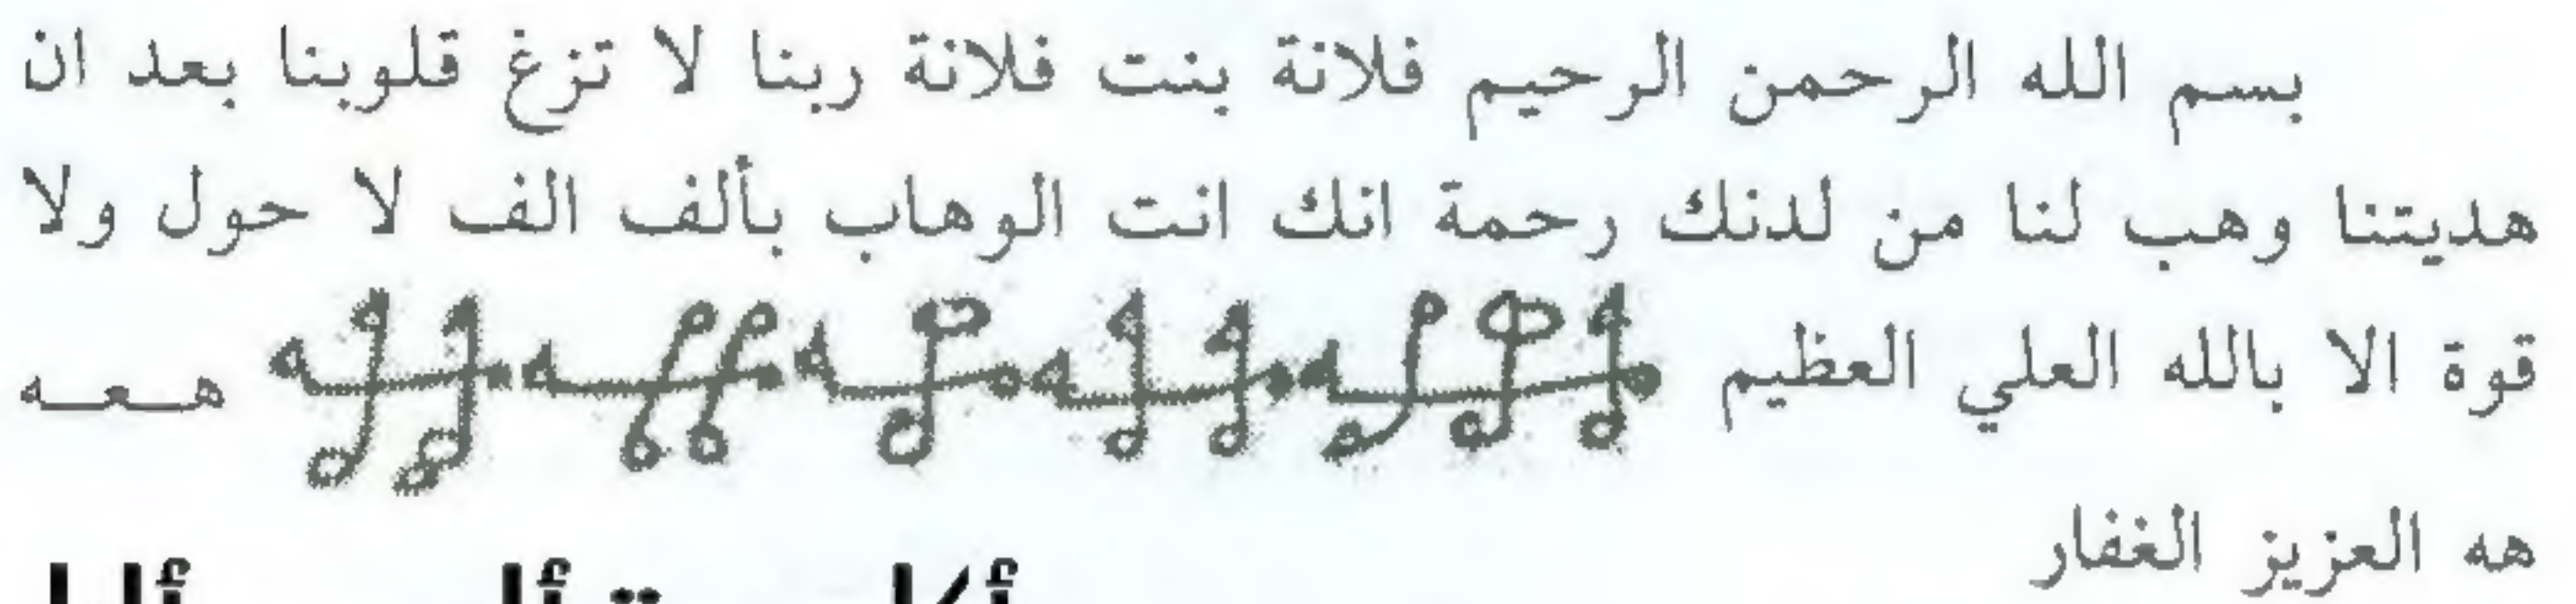 بسم الله الرحمن الرحيم فلانة بنت فلانة ربنا لا تزغ قلوبنا بعد ان
هديتنا وهب لنا من لدنك رحمة انك انت الوهاب بألف الف لا حول ولا
قوة الا بالله العلي العظيم هعه
هه العزيز الغفار